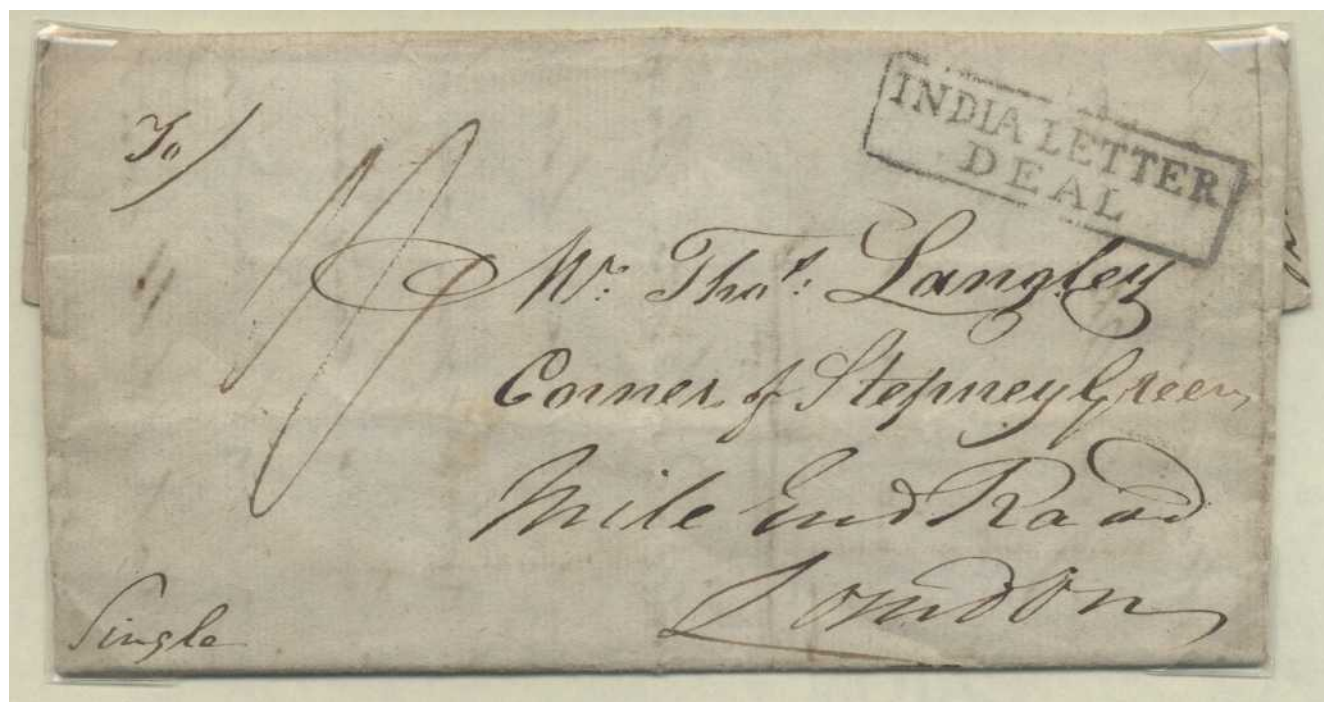 To
INDIA LETTER
DEAL
Mr. Thos. Langley
Corner of Stepney Green
Mile End Road
London
Single